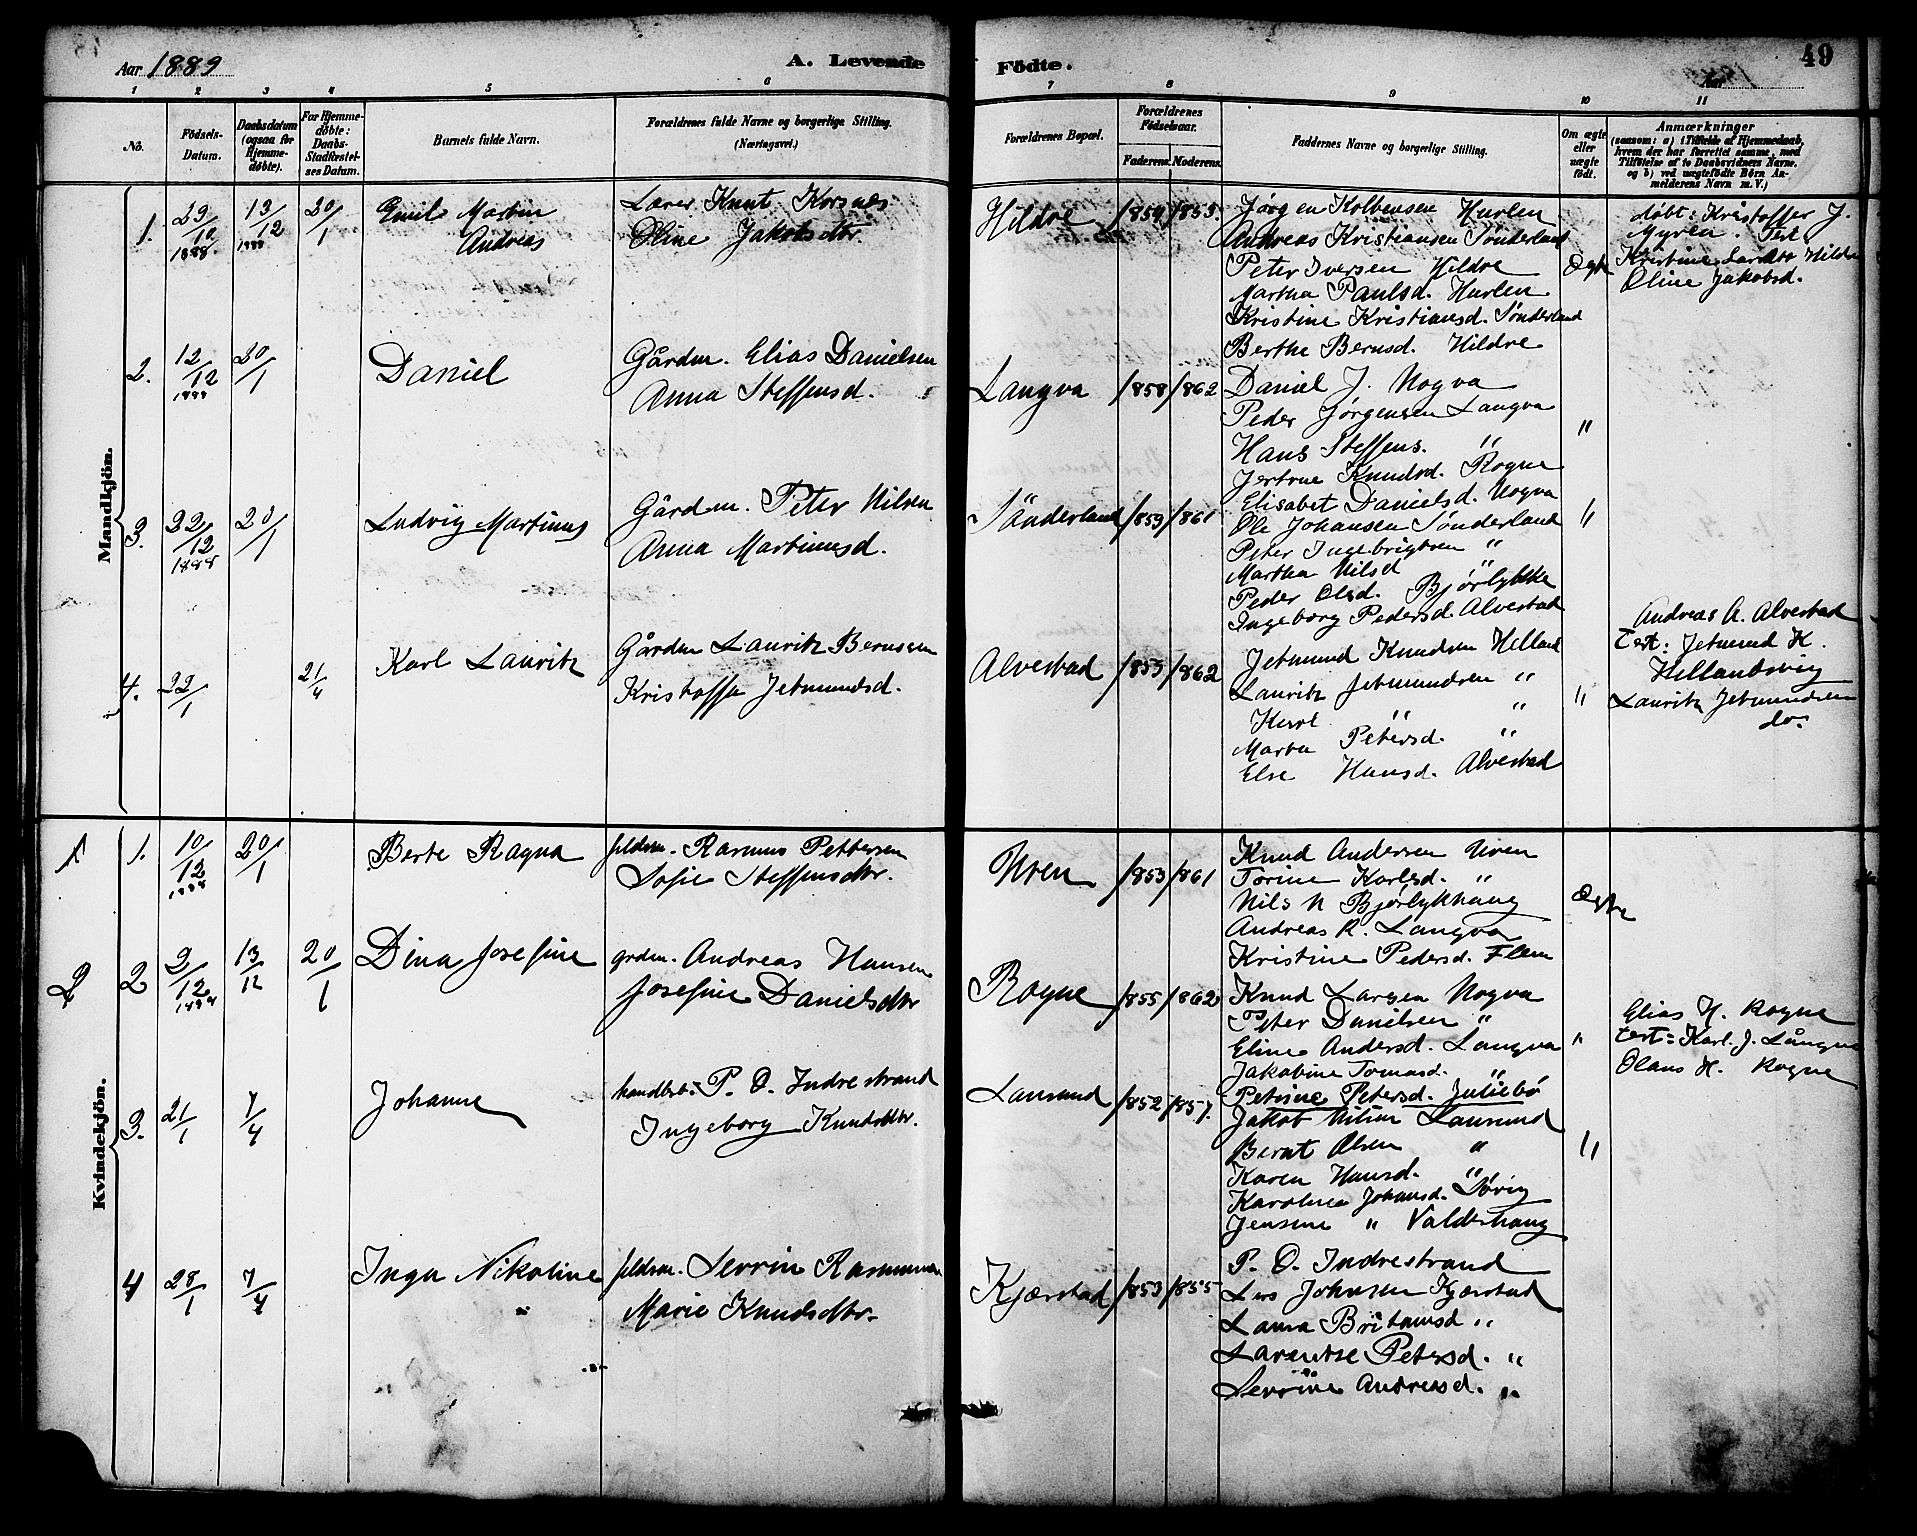 Aar 1889
A. Levende
Födte.
49
Aar
1 2 3 4 5 6 7 8 9 10 11
No.
Födsels-
Datum.
Daabsdatum
(ogsaa for
Hjemme-
döbte).
For Hjemme-
döbte:
Daabs-
Stadfæstel-
ses Datum.
Barnets fulde Navn.
Forældrenes fulde Navne og borgerlige Stilling.
(Næringsvei.)
Forældrenes Bopæl.
Forældrenes
Födselsaar.
Faderens. Moderens.
Faddernes Navne og borgerlige Stilling.
Om ægte
eller
uægte
født.
Anmærkninger
(saasom: a) i Tilfælde af Hjemmedaab,
hvem der har forrettet samme, med
Tilföielse af to Daabsvidners Navne,
og b) ved uægtefödte Börn An-
melderens Navn m. V.)
Mandkjön.
1. 29/12 1888 13/12 1888 20/1
Emil Martin
Andreas
Lærer Knut Korsnes
Oline Jakobsdtr.
Hildre 1859 1855.
Jørgen Kolbensen Hurlen
Andreas Kristiansen Sønderland
Peter Iversen Hildre
Martha Paulsd. Hurlen
Kristine Kristiansd. Sønderland
Berthe Bernsd. Hildre
Ægte
døbt: Kristoffer J.
Myren. Test
Kristine Larsdtr Hildre
Oline Jakobsd.
2. 12/12 1888 20/1
Daniel
Gårdm. Elias Danielsen
Anna Steffensd.
Langva 1858 1862
Daniel J. Nogva
Peder Jørgensen Langva
Hans Steffens. "
Jertrue Knudsd. Rogne
Elisabet Danielsd. Nogva
"
3. 22/12 1888 20/1
Ludvig Martinus
Gårdm. Peter Nilsen
Anna Martinusd.
Sänderland 1859 1861
Ole Johansen Sønderland
Peter Ingebrigtsen "
Martha Nilsd "
Peder Olsd. Bjørlykke
Ingeborg Pedersd. Alvestad
"
4. 22/1 21/4
Karl Lauritz
Gårdm Lauritz Bernsen
Kristoffa Jetmundsd.
Alvestad 1859 1862
Jetmund Knudsen Helland
Lauritz Jetmundsen "
Karl " "
Marta Petersd. "
Else Hansd. Alvestad
"
Andreas A. Alvestad
Test: Jetmund K.
Hellandsvig
Lauritz Jetmundsen
do.
Kvindekjön.
1 1. 10/12 1888 20/1
Berte Ragna
feldm. Rasmus Pettersen
Sofie Steffensdtr.
Uren 1853 1861
Knud Andersen Uren
Torine Karlsd. "
Nils N Bjørlykhaug
Andreas R. Langva
Kristine Pedersd. Flem
Ægte
2 2 9/12 1888 13/12 20/1
Dina Josefine
grdm. Andreas Hansen
Josefine Danielsdtr
Rogne 1855 1862
Knud Larsen Nogva
Peter Danilsen "
Eline Andersd. Langva
Jakobine Tomasd. "
Petrine Petersd. Juliebø
"
Elias H. Rogne
test: Karl. J. Långva
Olaus H. Rogne
3. 21/1 7/4
Johanne
handlsb. P. O. Indrestrand
Ingeborg Knudsdtr.
Lausund 1852 1857.
Jakob Nilsen Lausund
Bernt Olsen "
Karen Hansd. "
Karoline Johansd. Søvig
Jensine " Valderhaug
"
4 28/1 7/4
Inga Nikoline
feldm. Sevrin Rasmussen
Marie Knudsdtr.
Kjærstad 1853 1855
P. O. Indrestrand
Lars Johnsen Kjærstad
Laura Britansd "
Larentse Petersd. "
Sevrine Andreasd. "